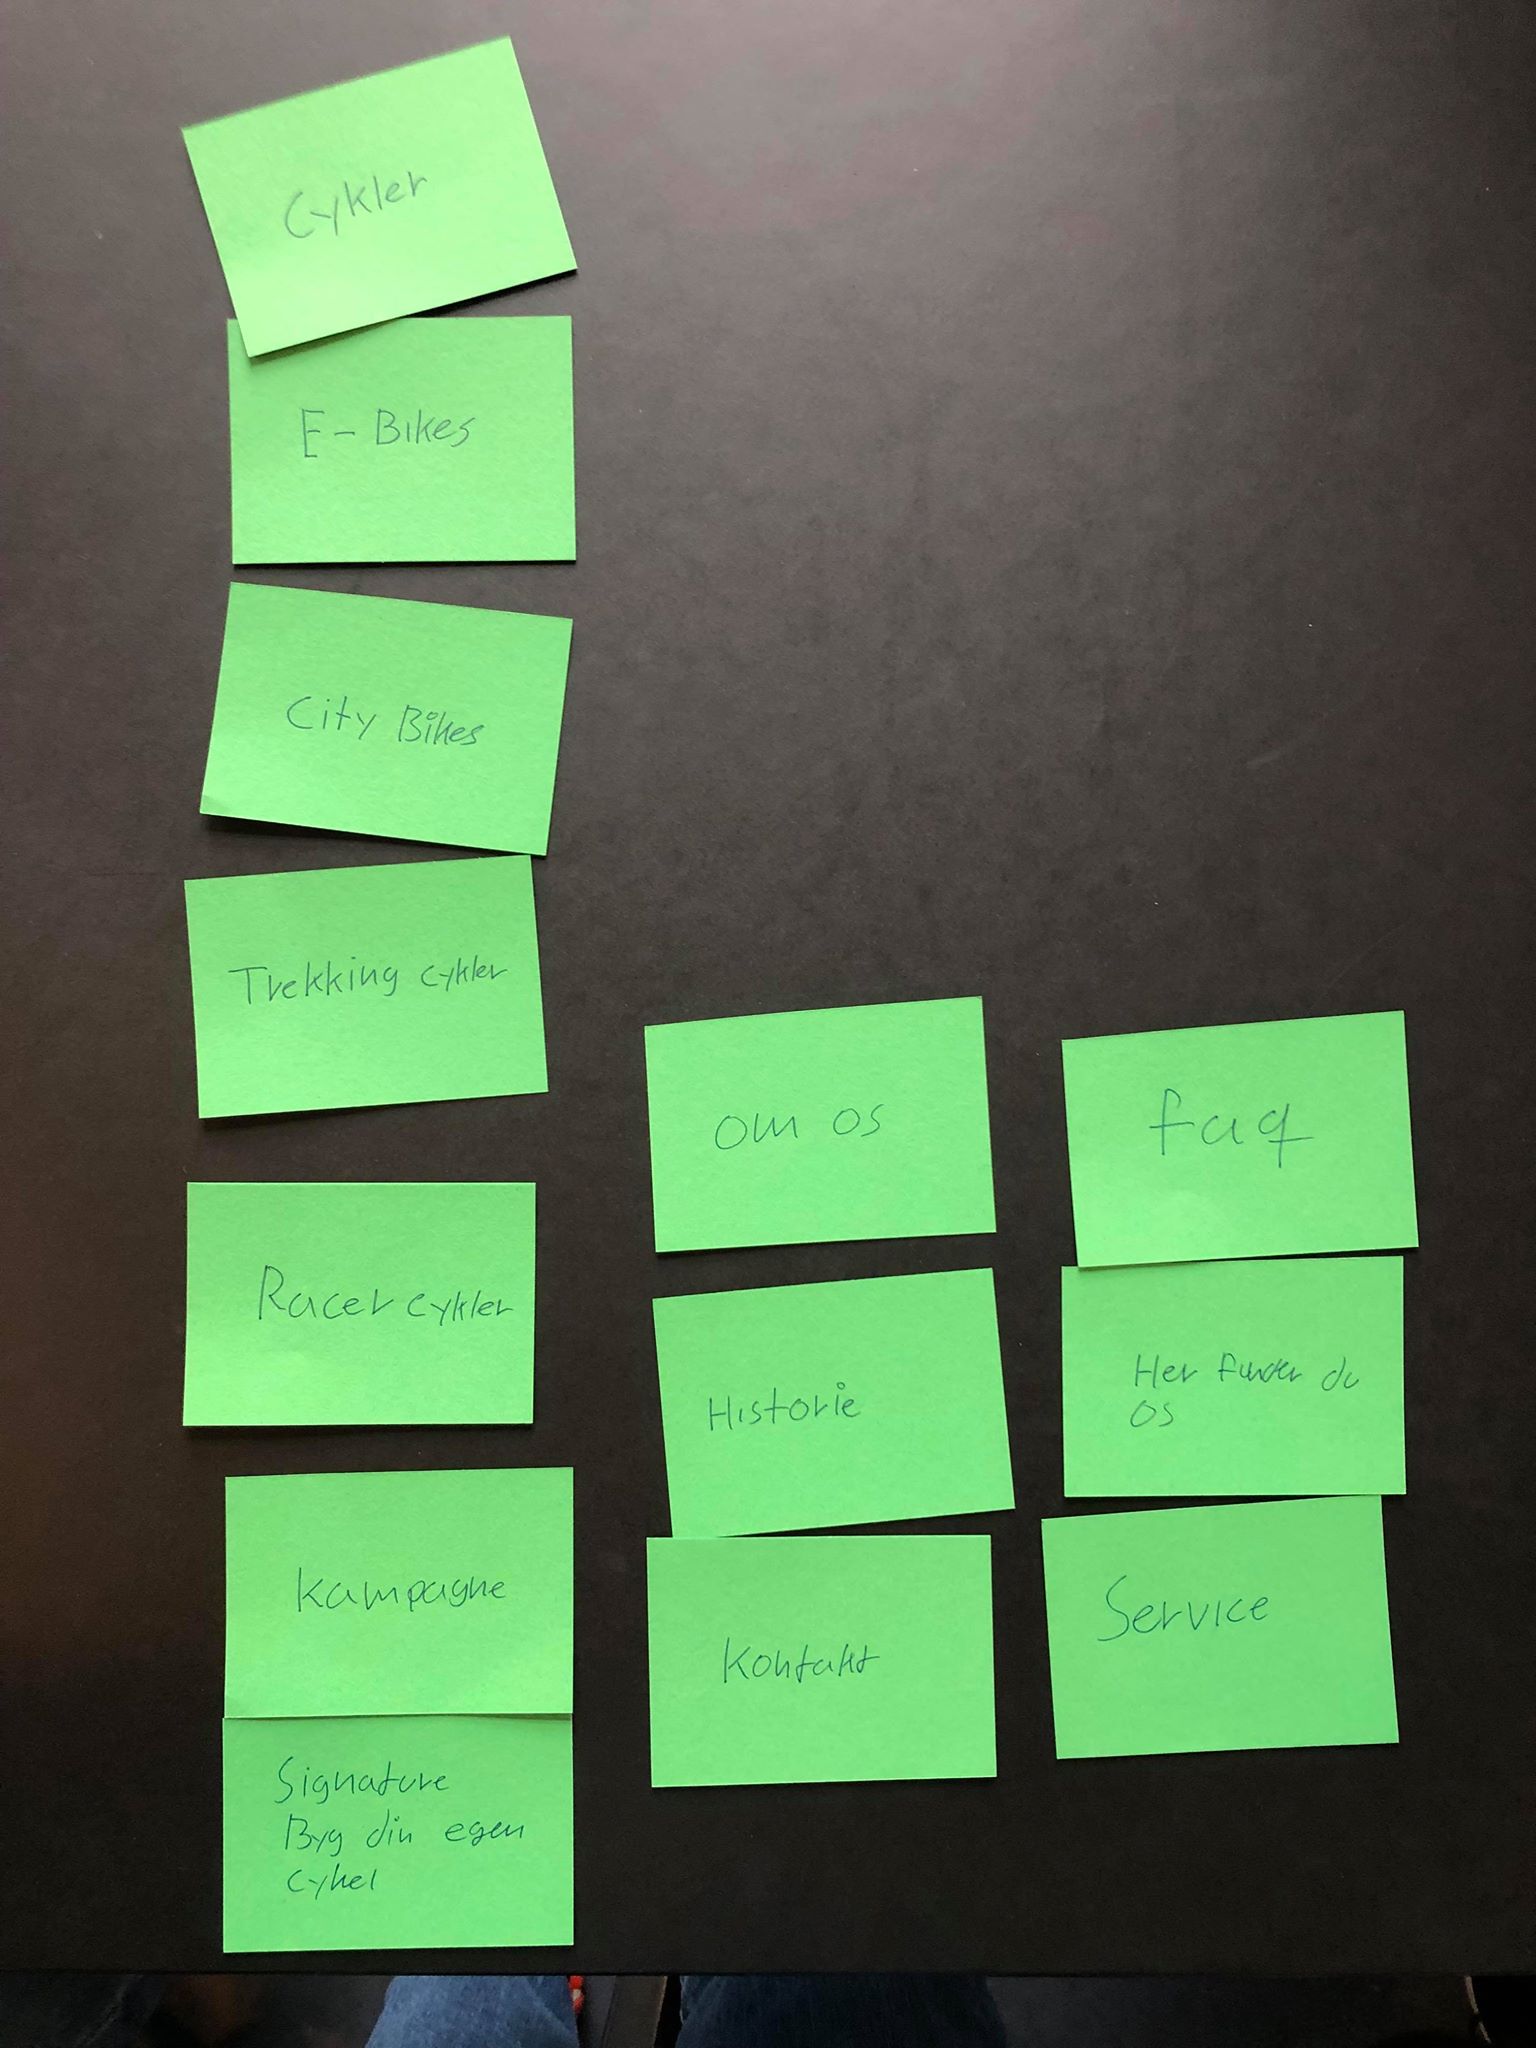 Cykler
E-Bikes
City Bikes
Trekking cykler
Racer cykler
Kampagne
Signature
Byg din egen
cykel
Om os
Historie
Kontakt
faq
Her finder du
os
Service